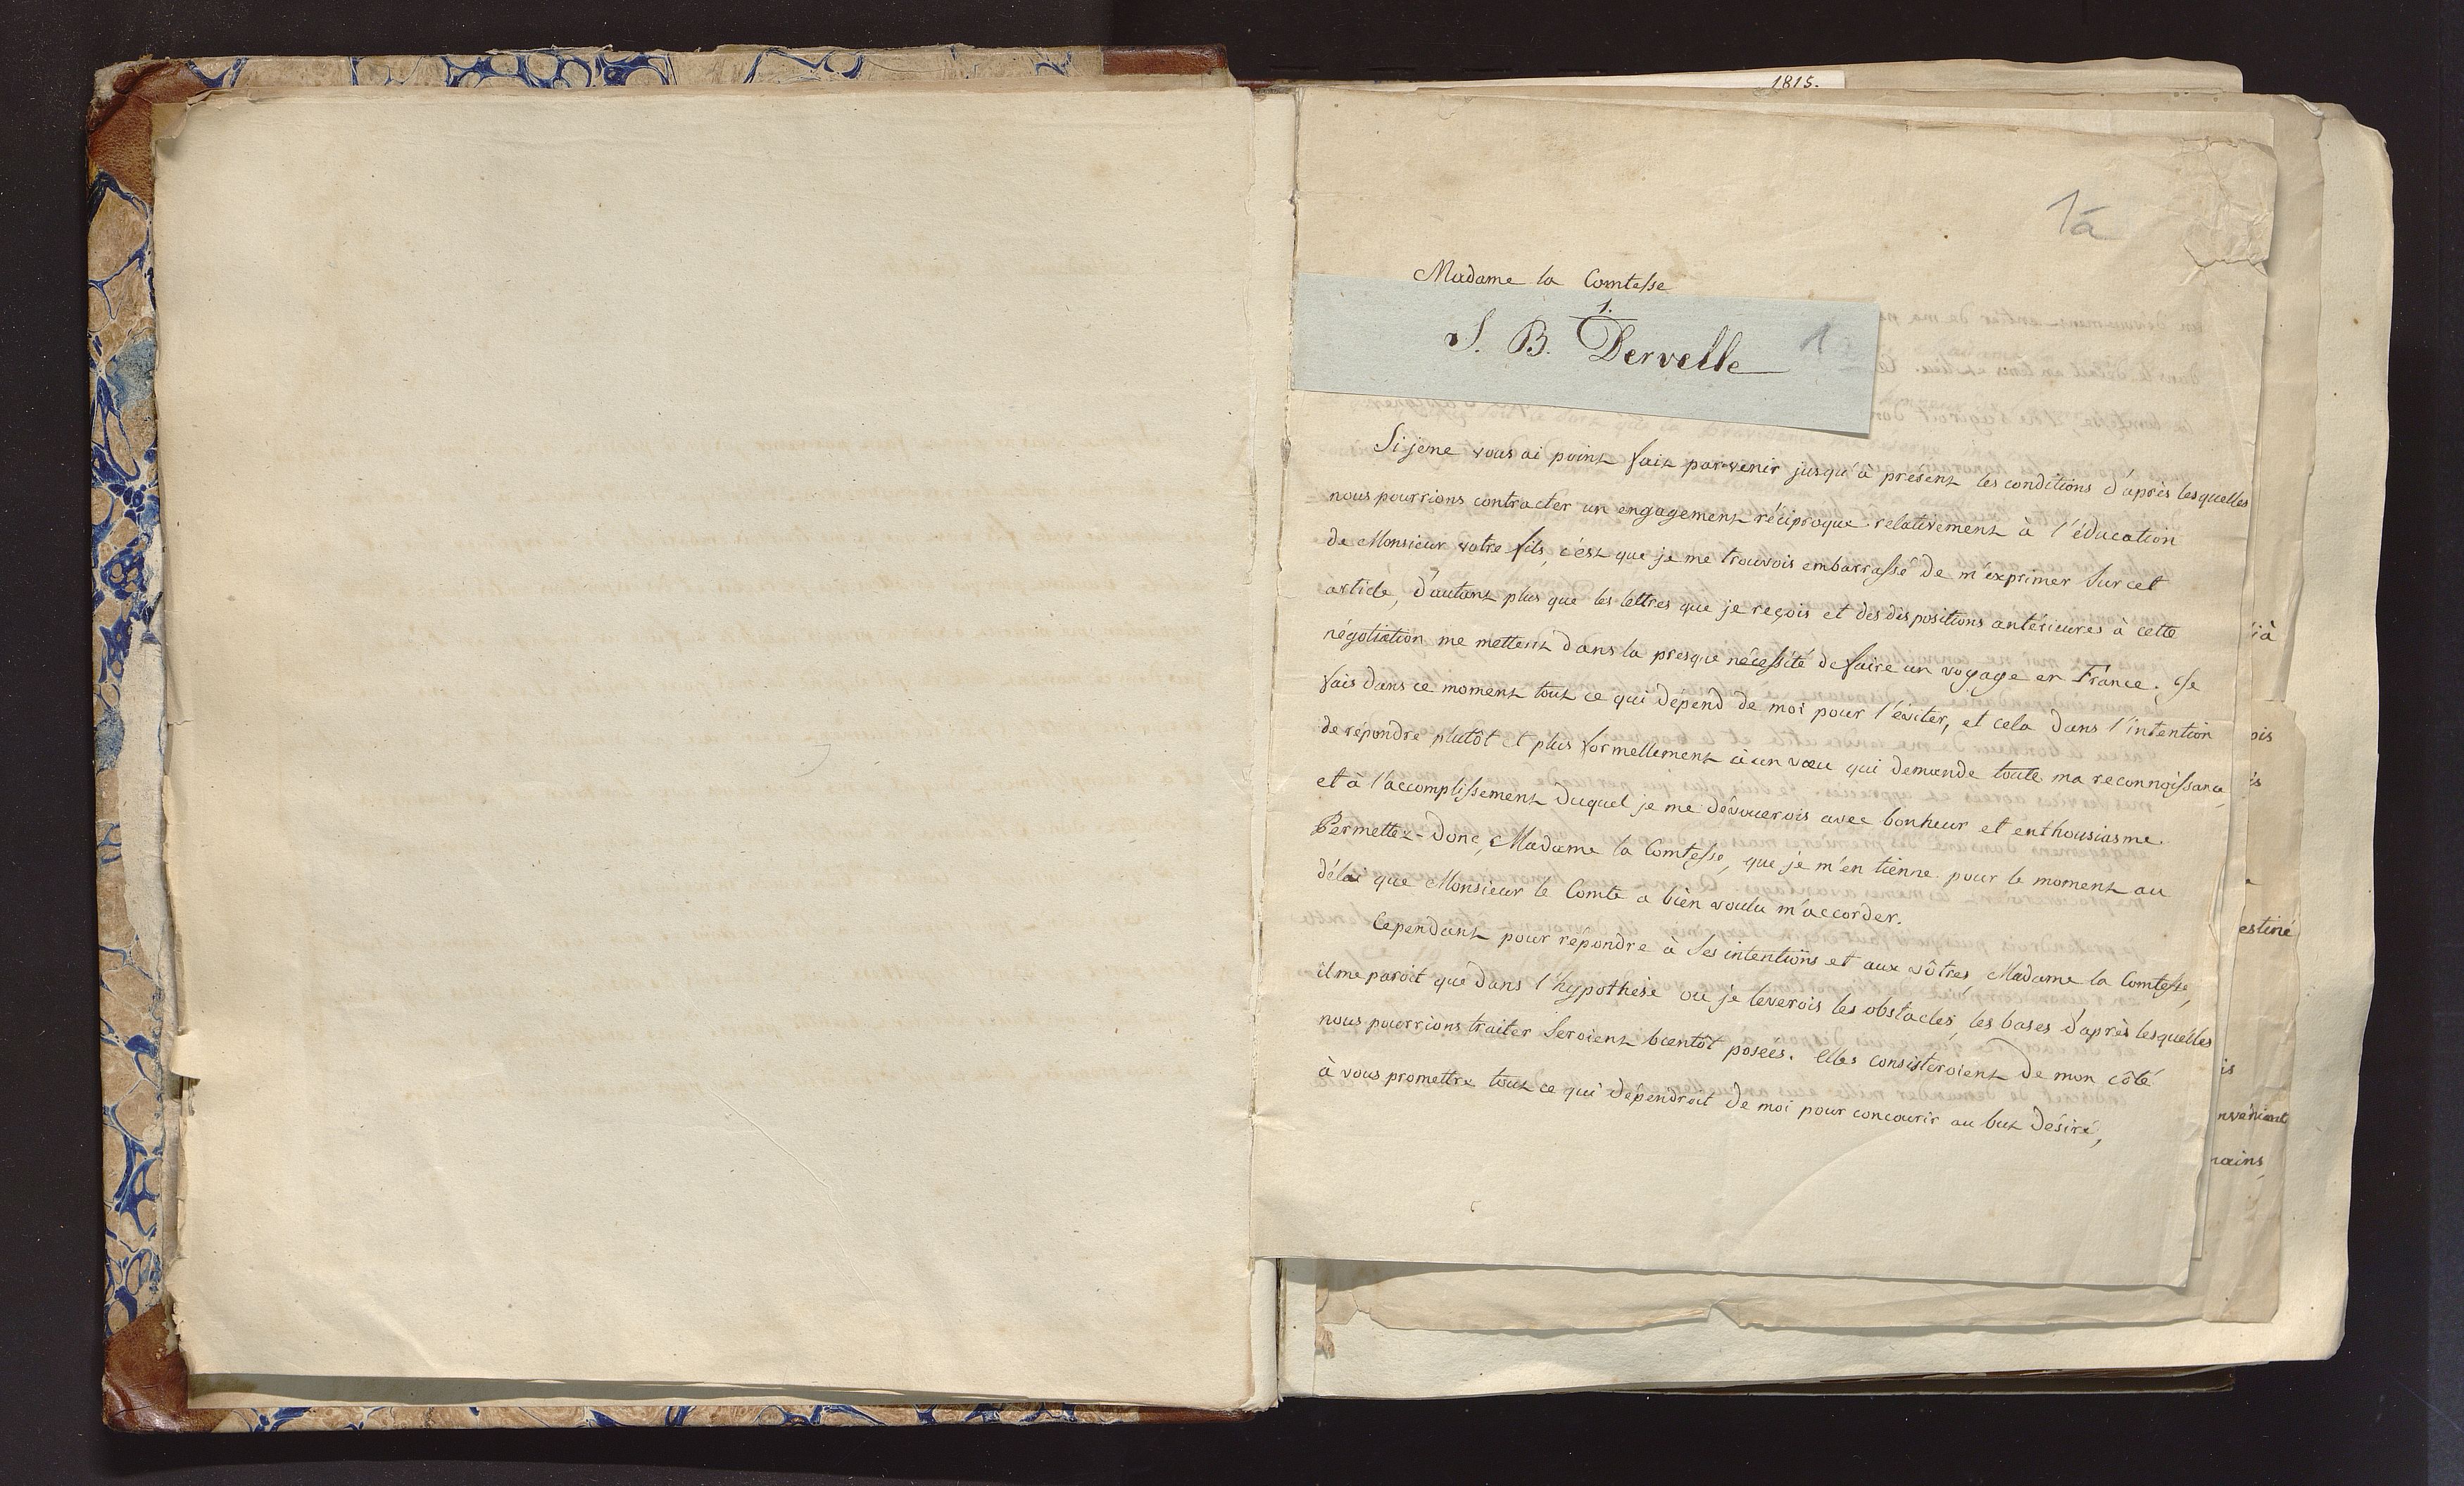 1815.
1a
Madame la Comtesse
1.
S. B. Dervelle
1
Si je ne vous ai point fait parvenir jusqu'à présent les conditions d'après lesquelles
nous pourrions contracter un engagement réciproque relativement à l'éducation
de Monsieur votre fils, c'est que je me trouvois embarrassé de m'exprimer sur cet
article, d'autant plus que les lettres que je reçois et des dispositions antérieures à cette
négotiation me mettent dans la presque nécessité de faire un voyage en France. Je
fais dans ce moment tout ce qui dépend de moi pour l'éviter, et cela dans l'intention
de répondre plutôt et plus formellement à un vœu qui demande toute ma reconnoissance,
et à l'accomplissement duquel je me dévouerois avec bonheur et enthousiasme.
Permettez-donc, Madame la Comtesse, que je m'en tienne pour le moment au
délai que Monsieur le Comte a bien voulu m'accorder.
Cependant pour répondre à ses intentions et aux vôtres, Madame la Comtesse,
il me paroit que dans l'hypothèse où je leverois les obstacles, les bases d'après lesquelles
nous pourrions traiter seroient bientôt posées. Elles consisteroient de mon côté
à vous promettre tout ce qui dépendroit de moi pour concourir au but désiré,